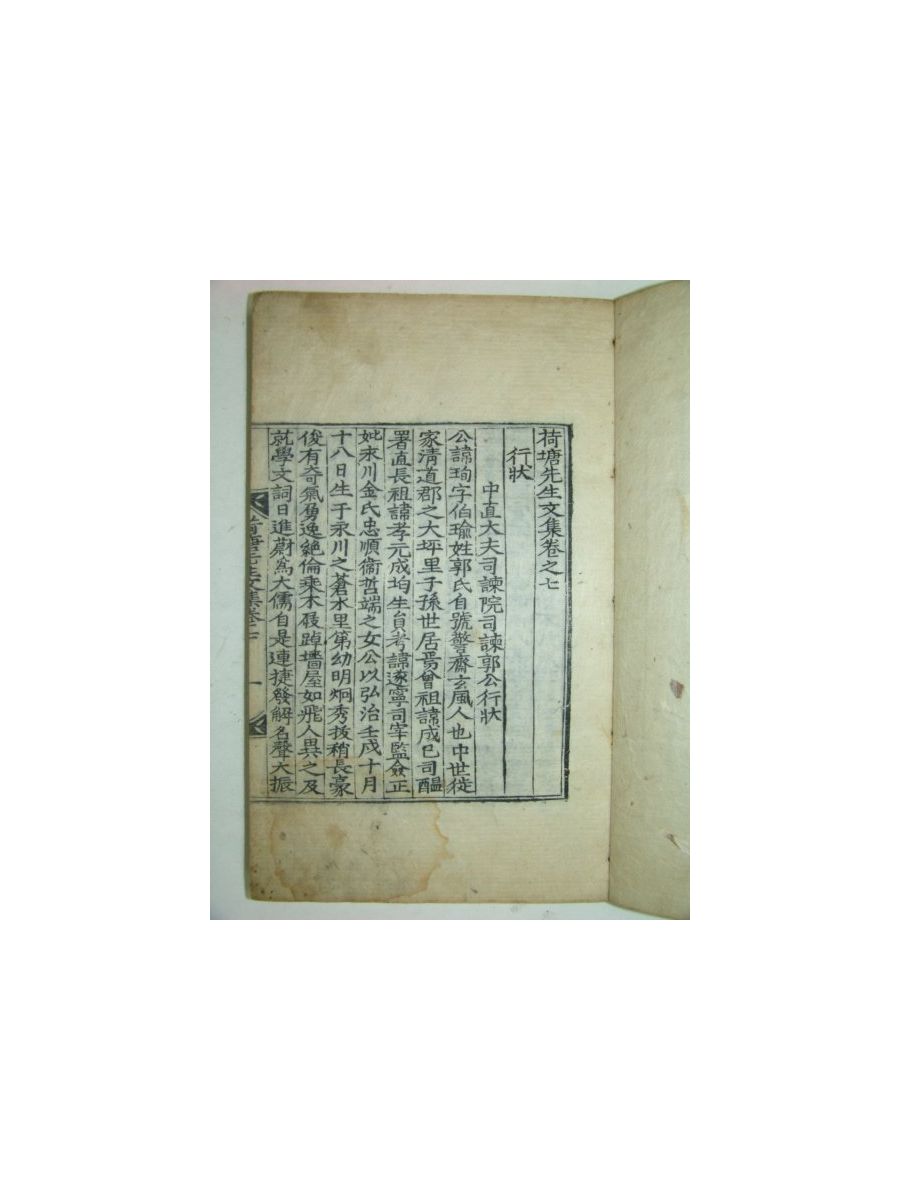 荷塘先生文集卷之七
行狀
中直大夫司諫院司諫郭公行狀
公諱珣字伯瑜姓郭氏自號警齋玄風人也中世徙
家淸道郡之大坪里子孫世居焉曾祖諱成己司醞
署直長祖諱孝元成均生員考諱遂寧司宰監僉正
妣永川金氏忠順衛哲端之女公以弘治壬戌十月
十八日生于永川之蒼水里第幼明炯秀拔稍長豪
俊有奇氣勇逸絶倫乘木屐踔墻屋如飛人異之及
就學文詞日進蔚爲大儒自是連捷發解名聲大振
荷塘先生文集卷七 一